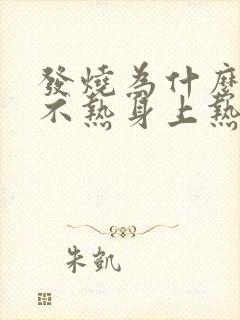 發燒為什麼
不熱身上熱
朱凱